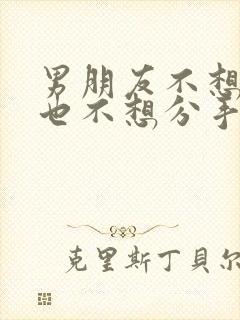 男朋友不想
也不想分手
克里斯丁贝尔